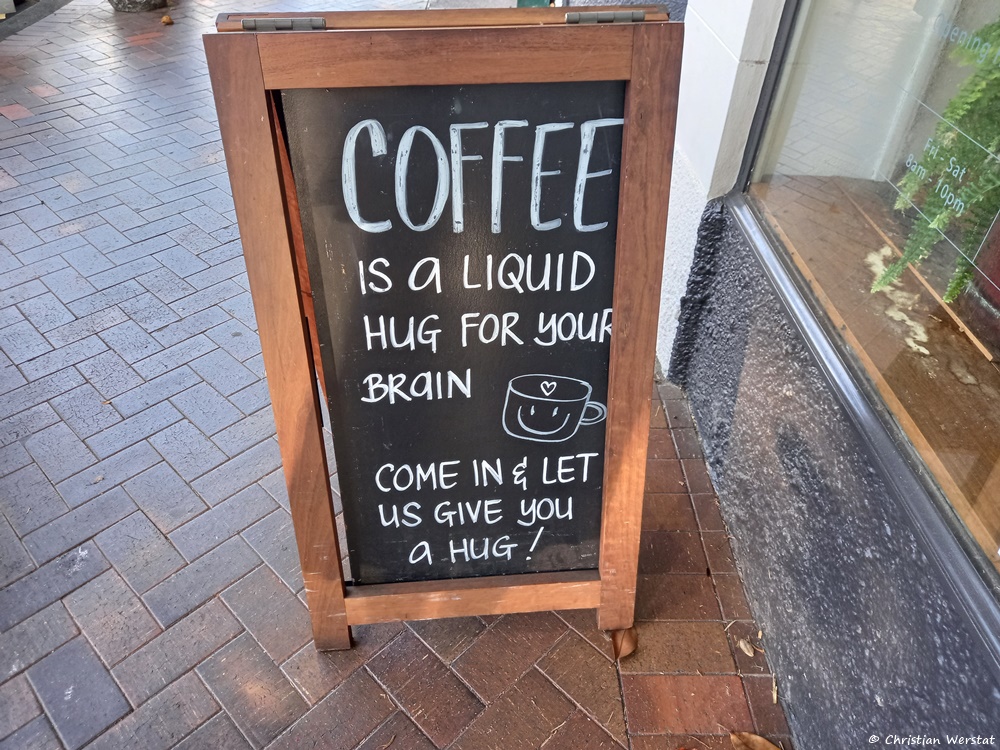 COFFEE
IS a LIQUID
HUG FOR YOUR
BRaIN
COME IN & LET
US GIVE YOU
a HUG!
Opening
Fri, Sat
8am 10pm
© Christian Werstat